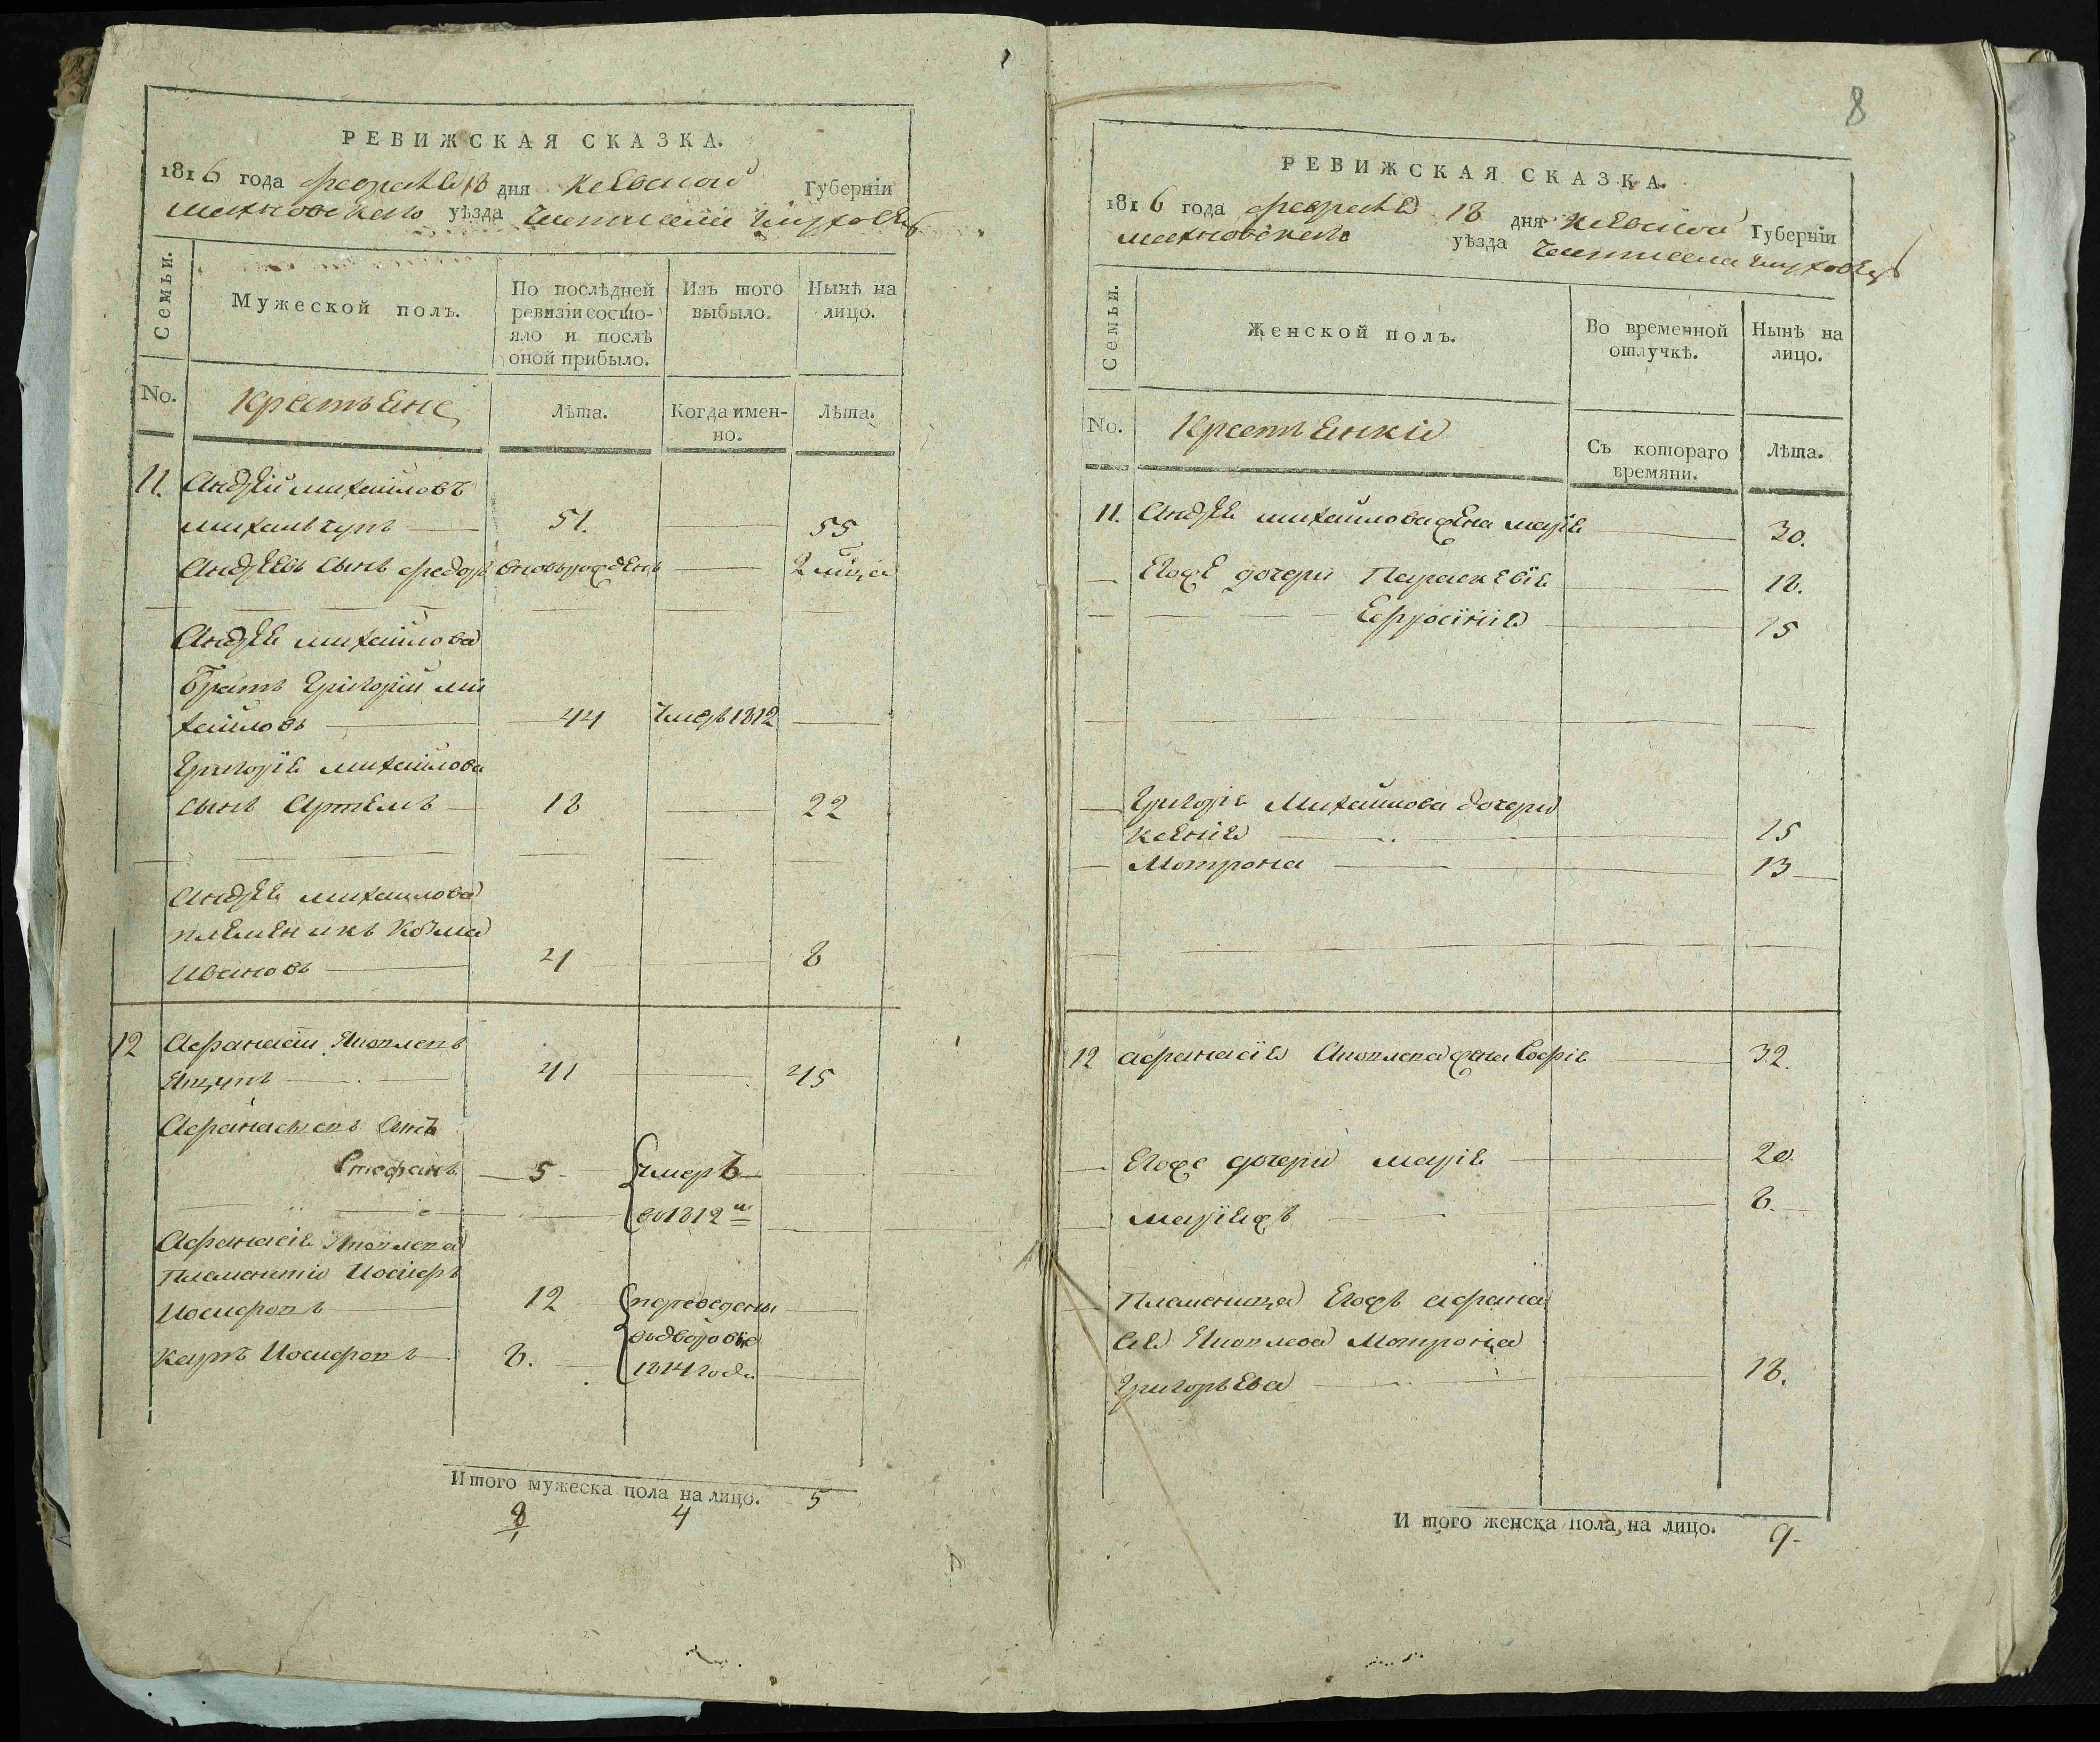 РЕВИЖСКАЯ СКАЗКА.
1816 года февраля 18 дня Киевской Губернїи
махновскаго уѣзда
Семьи.
Мужеской полъ.
По послѣдней ревизїи состояло и послѣ оной прибыло.
Изъ того выбыло.
Нынѣ на лицо.
No.
Крестьяне
Лѣта.
Когда именно.
Лѣта.
11. Андрей михайловъ
51. 55
Андрѣевъ сынъ федоръ вновьрожденъ
Андрея михайлова
братъ Григорїй ми
хайловъ 44 умеръ 1812
Григорїя михайлова
сынъ Артемъ 18 22
Андрея михайлова
племеникъ Козма
Ивановъ 4 8
12 Афанасїй
Яцукъ 41 45
Афанасьевъ сынъ
Стефанъ 5 умеръ
во 1812 м
Афанасїя
Племенники Иосифъ
Иосифовъ 12 переведены
въ дворовые
Иосифовъ 8. 1814 года
Итого мужеска пола на лицо. 5
9 4
8
РЕВИЖСКАЯ СКАЗКА.
1816 года февраля 18 дня Киевской Губернїи
махновскаго уѣзда
Семьи.
Женской полъ.
Во временной отлучкѣ.
Нынѣ на лицо.
No.
Крестьянки
Съ котораго времяни.
Лѣта.
11. Андрея михайлова жена марїя 30.
Егоже дочери Параскевїя 18.
Ефросїнїя 15
Григорїя Михайлова дочери
Ксенїя 15
Мотрона 13
12 афанасїя жена Софїя 32.
Егоже дочери марїя 20
марїяжъ 8.
Племеница Егожъ афана
сїя Мотрона
Григорьева 18.
Итого женска пола на лицо. 9